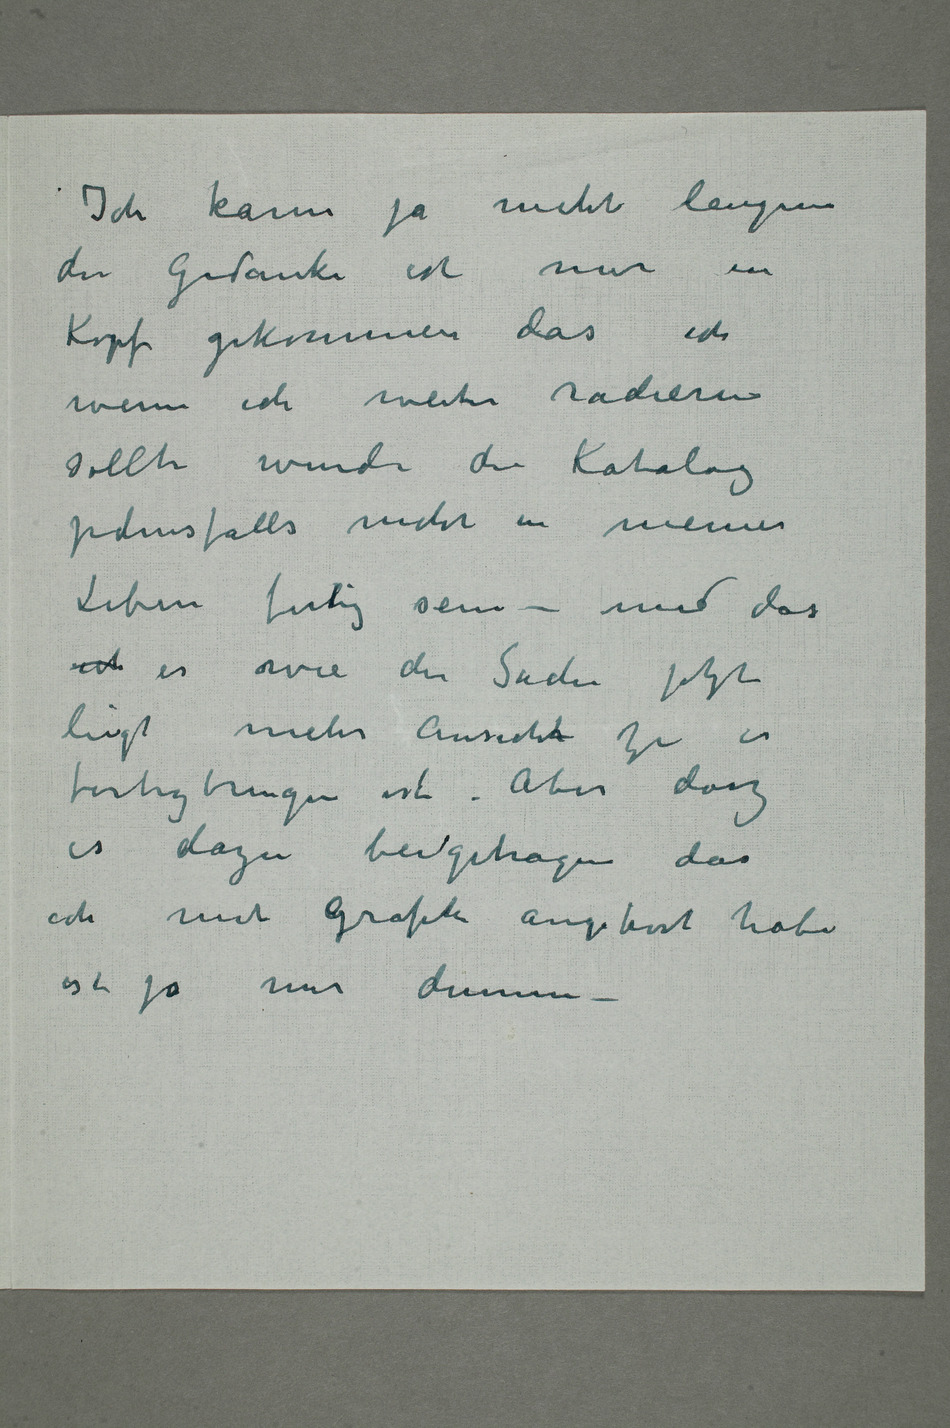 Ich kann ja nicht leugnen
der Gedanke ist mir in
Kopf gekommen das ich
wenn ich weiter radieren
sollte wurde die Katalog
jedensfalls nicht in meiner
Leben fertig sein – und das
ist es wie die Sache jetzt
liegt mehr Aussicht zu es
fertigbringen ist. Aber dasz
es dazu beigetragen das
ich mit Grafik aufgehört habe
ist ja nur dumm –